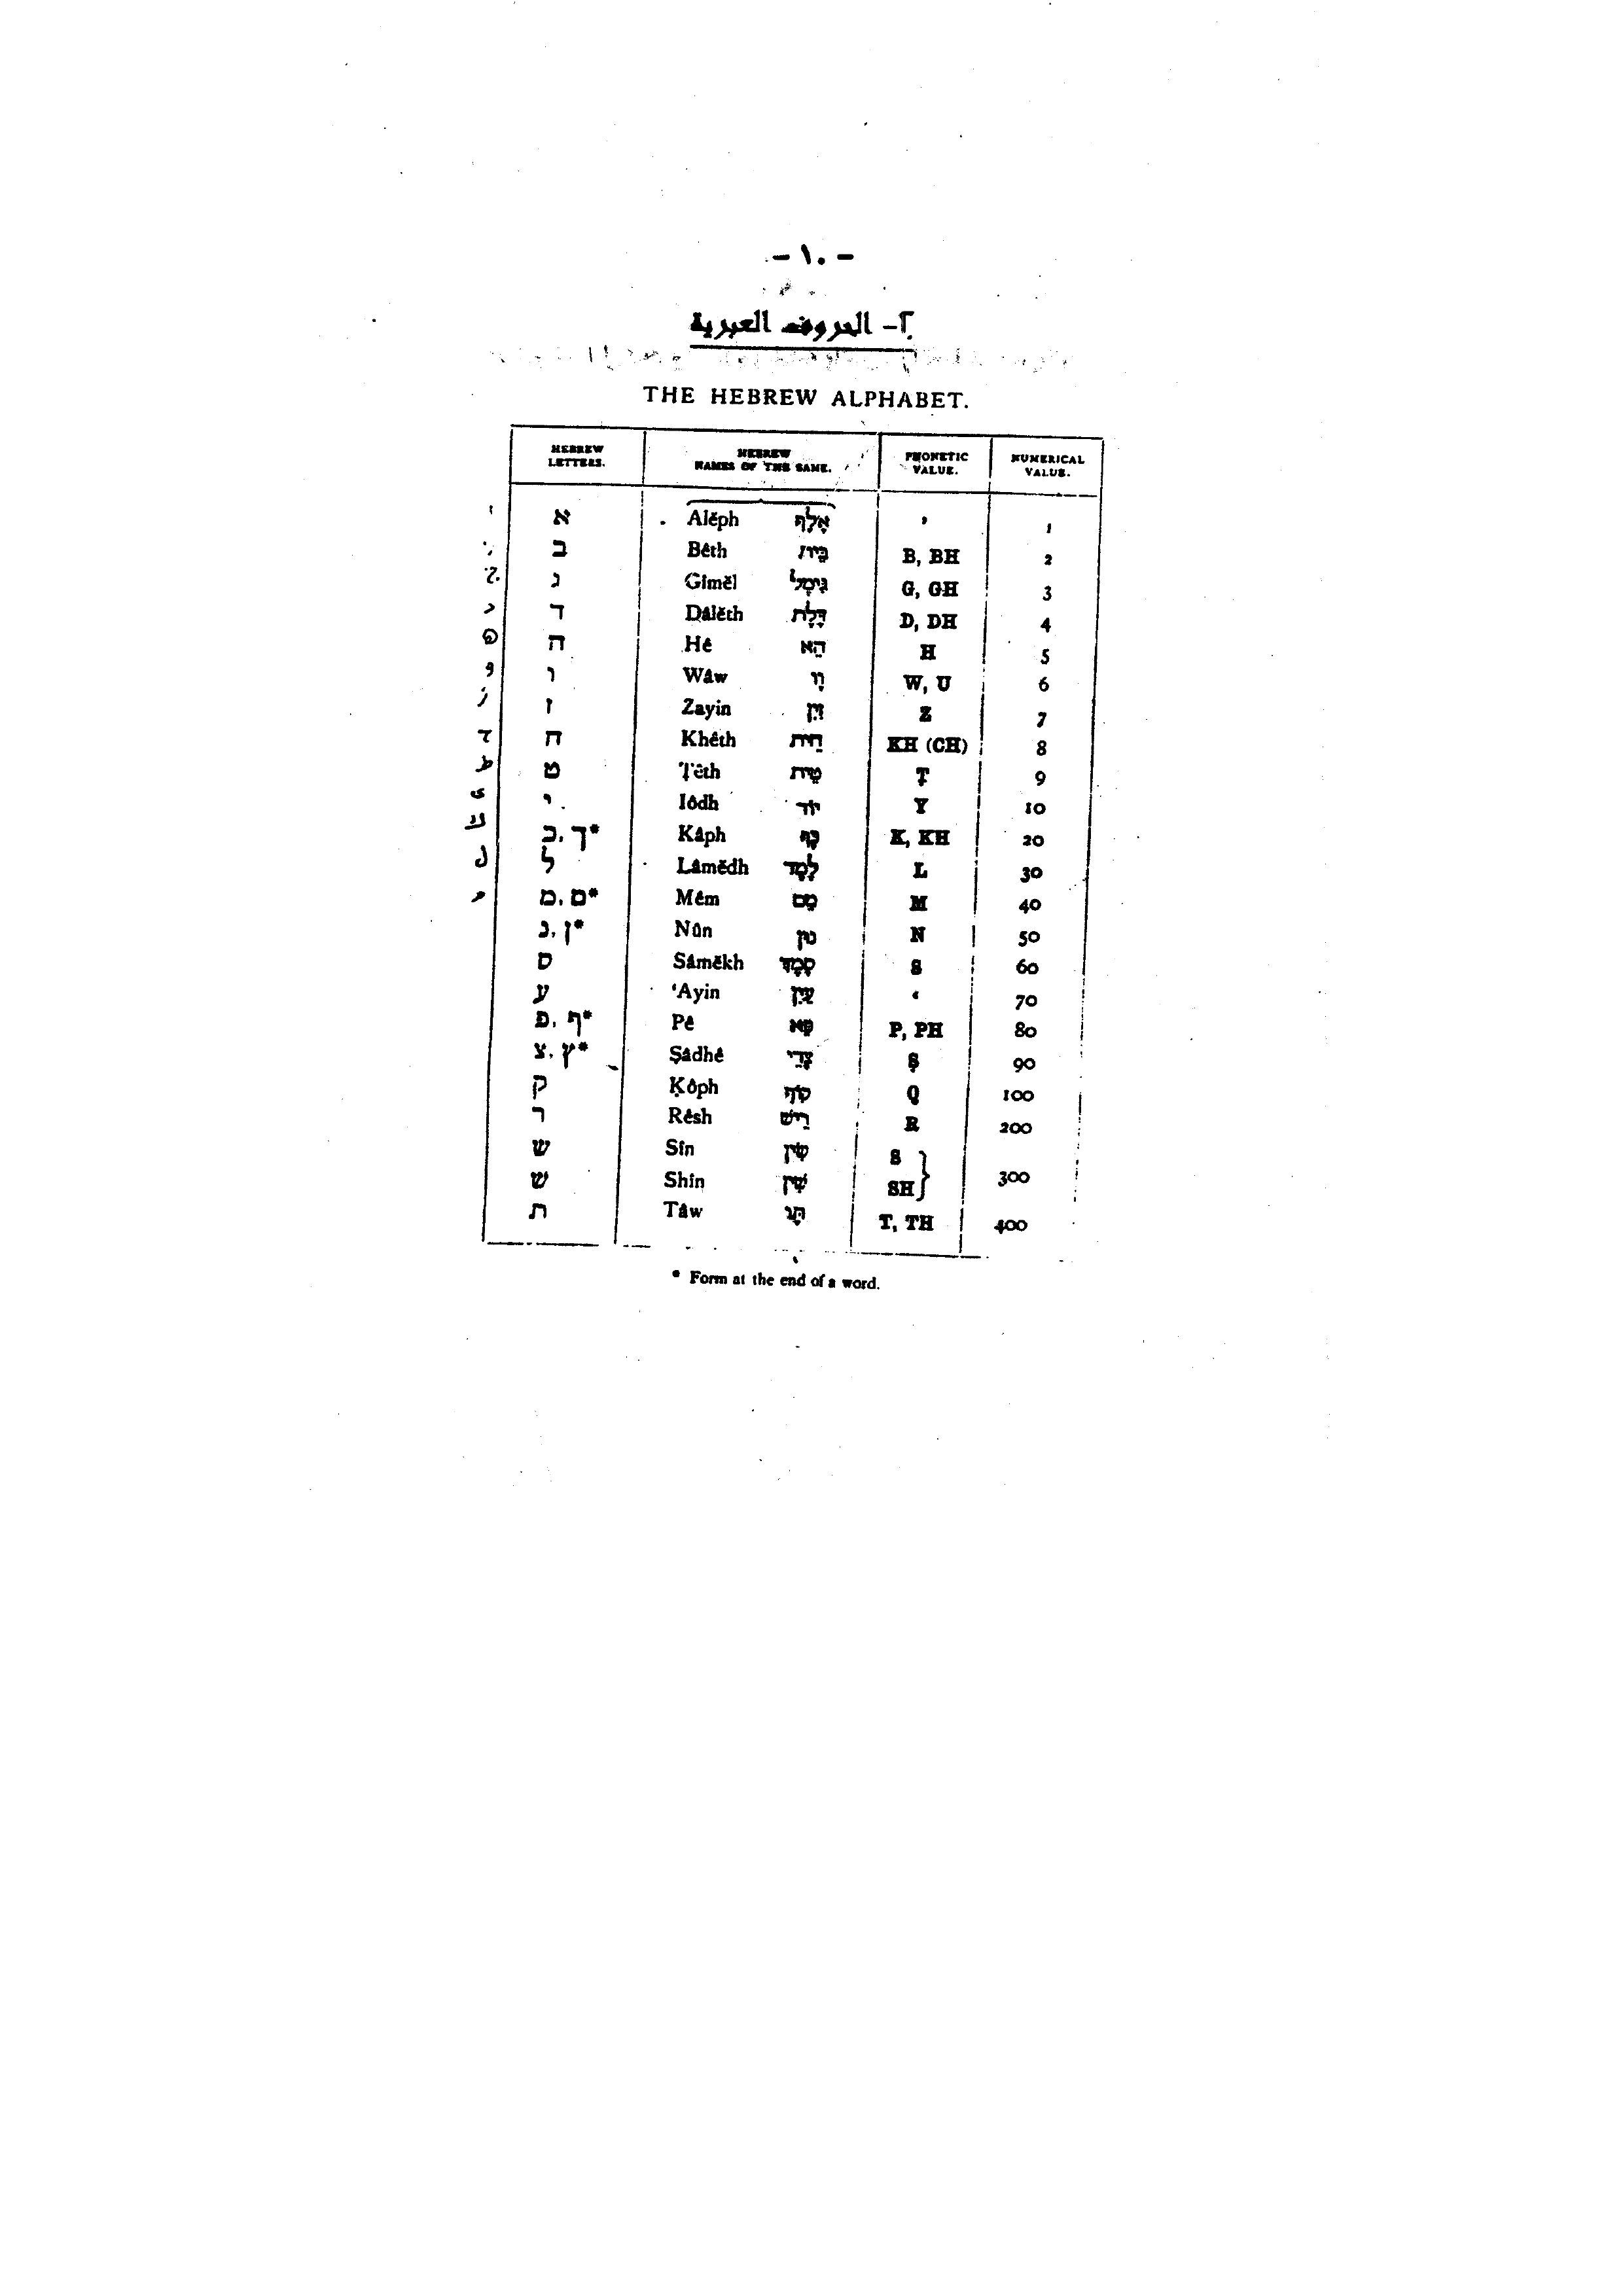 - ١٠ -
آ- الحروف العبرية
THE HEBREW ALPHABET.
HEBREW LETTERS. HEBREW NAMES OF THE SAME. PHONETIC VALUE. NUMERICAL VALUE.
א Alĕph אָלֶף ’ 1
ב Bêth בֵּית B, BH 2
ג Gimĕl גִּימֶל G, GH 3
ד Dâlĕth דָּלֶת D, DH 4
ה Hê הֵא H 5
ו Wâw וָו W, U 6
ז Zayin זַיִן Z 7
ח Khêth חֵית KH (CH) 8
ט Ṭêth טֵית Ṭ 9
י Iôdh יוֹד Y 10
כ, ך* Kâph כָּף K, KH 20
ל Lâmĕdh לָמֶד L 30
מ, ם* Mêm מֵם M 40
נ, ן* Nûn נוּן N 50
ס Sâmĕkh סָמֶךְ S 60
ע ‘Ayin עַיִן ‘ 70
פ, ף* Pê פֵּא P, PH 80
צ, ץ* Ṣâdhê צָדֵי Ṣ 90
ק Ḳôph קוֹף Q 100
ר Rêsh רֵישׁ R 200
ש Sîn שִׂין S
ש Shîn שִׁין SH } 300
ת Tâw תָּו T, TH 400
* Form at the end of a word.